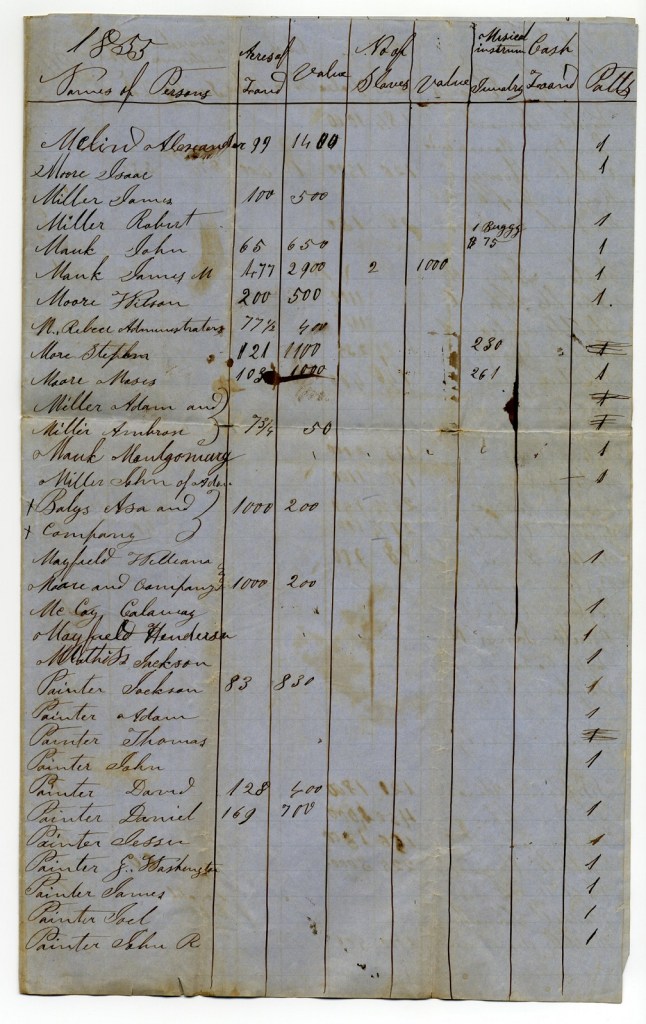 1855
Names of Persons Acres of Land Value No of Slaves Value Musical instrum Jewelry Cash Loand Polls
Melind Alexander 99 1400 1
Moore Isaac 1
Miller James 100 500
Miller Robert 1
Mauk John 65 650 1 Buggy $75 1
Mauk James M 477 2900 2 1000 1
Moore Wilson 200 500 1.
M, Rebec Administrators 77½ 400
More Stephen 121 1100 230 1
Moore Moses 103 1000 261 1
Miller Adam and 1
Miller Ambros 73¼ 50 1
Mauk Montgomury 1
Miller John of Adam 1
+ Balys Asa and 1000 200
+ Company
Mayfield William 1
Moore and Company 1000 200
McCoy Calaway 1
Mayfield Henderson 1
Mathis Jackson 1
Painter Jackson 83 830 1
Painter Adam 1
Painter Thomas 1
Painter John 1
Painter David 128 400
Painter Daniel 169 700 1
Painter Jessee 1
Painter G. Washington 1
Painter James 1
Painter Joel 1
Painter John R 1